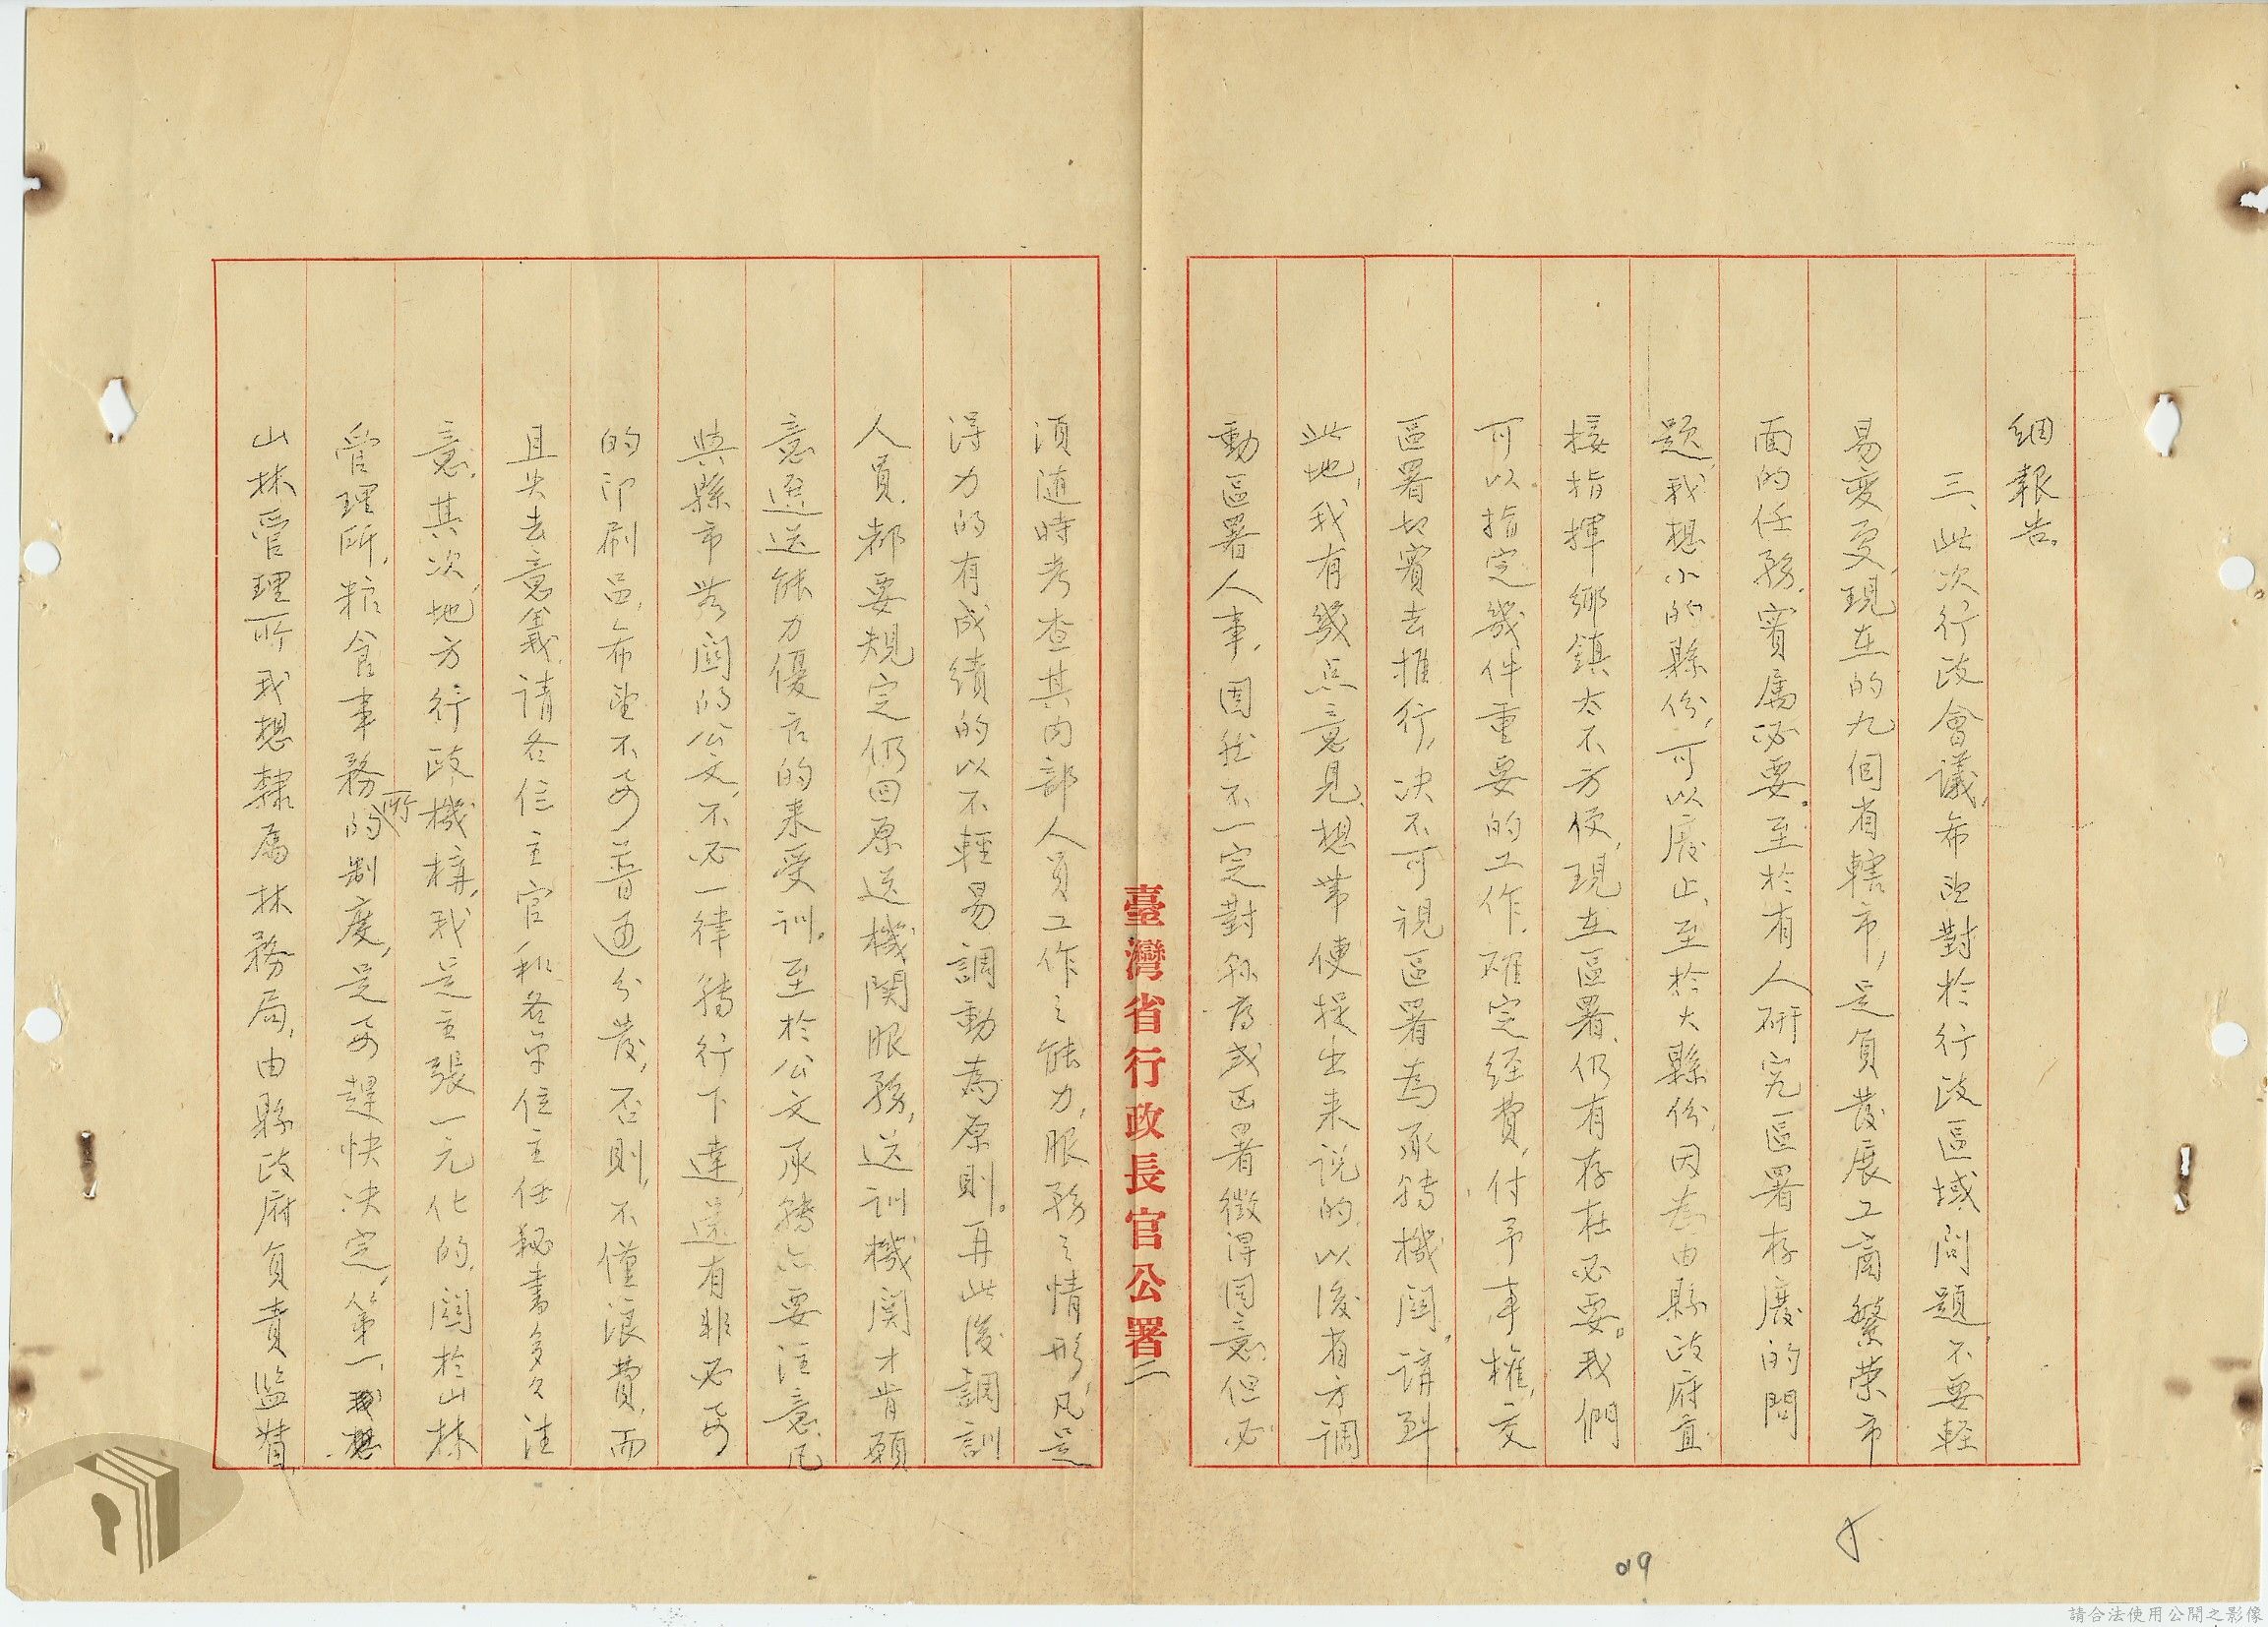 細報告。
三、此次行政會議,希望對於行政區域問題,不要輕
易變更,現在的九個省轄市,是負發展工商繁荣市
面的任務,實属必要。至於有人研究區署存廢的問
題,我想小的縣份,可以廢止,至於大縣份,因為由縣政府直
接指揮鄉鎮太不方便,現在區署,仍有存在必要。我們
可以指定幾件重要的工作,確定經費,付予事權,交
區署切實去推行,决不可視區署為承轉機関,講到
此地,我有幾点意見,想帶便提出来说的,以後省方調
動區署人事,固然不一定對縣府或区署徵得同意,但必
臺灣省行政長官公署 二
須随時考查其内部人員工作之能力,服務之情形,凡是
得力的有成績的以不輕易調動為原則。再此後調訓
人員,都要規定仍回原送機関服務,送訓機関才肯願
意遴送能力優良的来受訓。至於公文承轉亦要注意,凡
與縣市無関的公文,不必一律轉行下達,還有非必要
的印刷品,希望不要普通分發,否則,不僅浪費,而
且失去意義,請各位主官和各单位主任秘書多多注
意,其次,地方行政機構,我是主張一元化的,関於山林
管理所,粮食事務所的制度,是要趕快决定,第一,我想
山林管理所我想隸属林務局,由縣政府負責監督,
019
請合法使用公開之影像